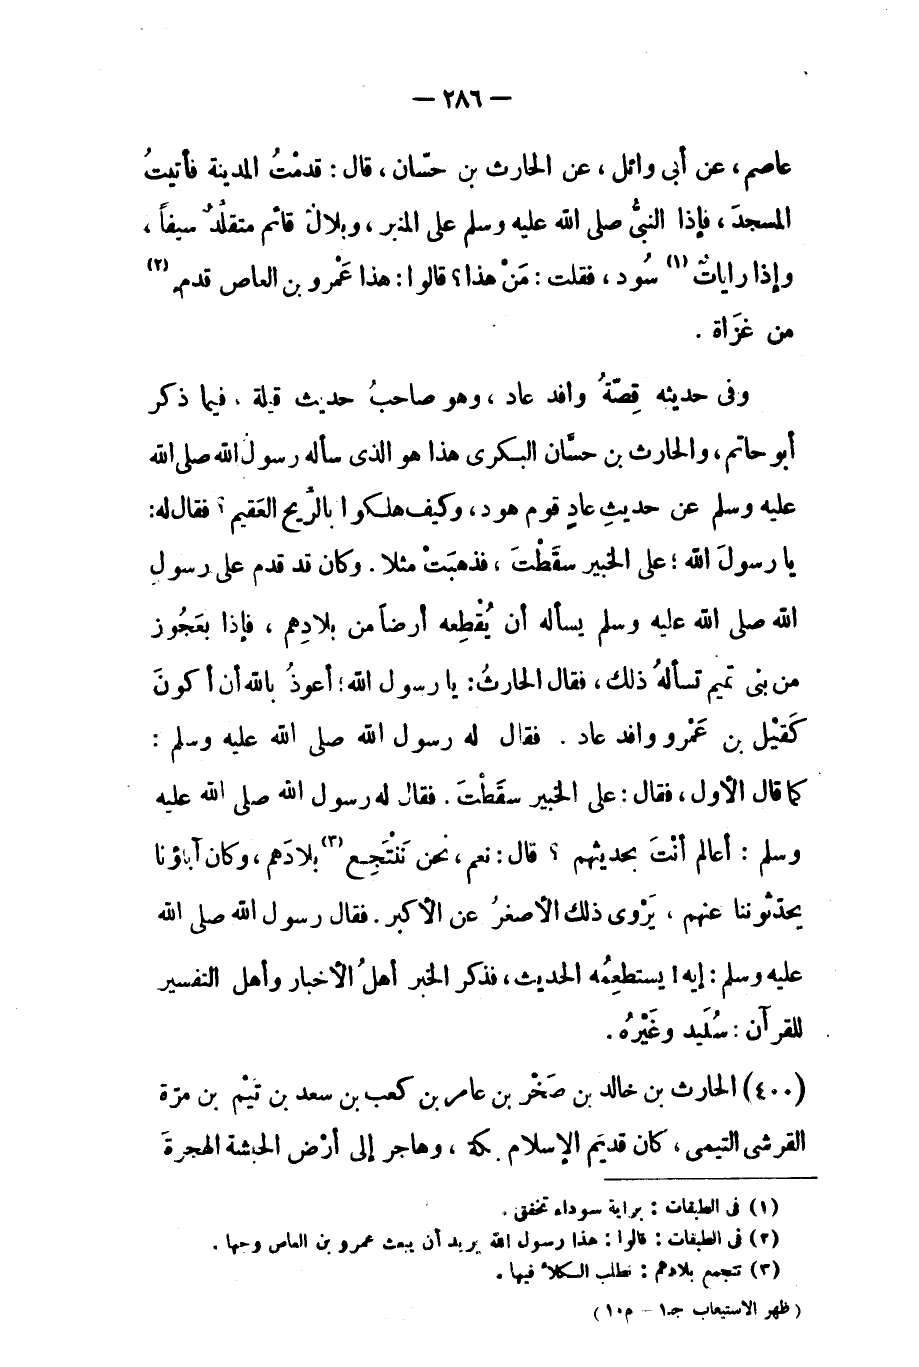 — ٢٨٦ —
عاصم، عن أبى وائل، عن الحارث بن حسّان، قال: قدمْتُ المدينة فأتيتُ
المسجدَ، فإذا النبىُّ صلى الله عليه وسلم على المنبر، وبلالٌ قائم متقلّدٌ سيفاً،
وإذا راياتٌ (١) سُود، فقلت: مَنْ هذا؟ قالوا: هذا عَمْرو بن العاص قدم (٢)
من غزَاة.
وفى حديثه قِصّةُ وافد عاد، وهو صاحبُ حديث قيلة، فيما ذكر
أبو حاتم، والحارث بن حسَّان البكرى هذا هو الذى سأله رسول الله صلى الله
عليه وسلم عن حديثِ عادٍ قوم هود، وكيف هلكوا بالرِّيح العَقيم؟ فقال له:
يا رسولَ الله؛ على الخبير سقَطْتَ، فذهبَتْ مثلا. وكان قد قدم على رسولِ
الله صلى الله عليه وسلم يسأله أن يُقْطِعه أرضاً من بلادِهم، فإذا بعَجُوز
من بنى تميم تسألهُ ذلك، فقال الحارثُ: يا رسول الله؛ أعوذُ بالله أن أكونَ
كَقيْل بن عَمْرو وافد عاد. فقال له رسول الله صلى الله عليه وسلم:
كما قال الأول، فقال: على الخبير سقَطْتَ. فقال له رسول الله صلى الله عليه
وسلم: أعالم أنْتَ بحديثهم؟ قال: نعم، نحن نَنْتَجِع (٣) بلادَهم، وكان آباؤنا
يحدّثوننا عنهم، يَرْوى ذلك الأصغرُ عن الأكبر. فقال رسول الله صلى الله
عليه وسلم: إيها يستطعِمُه الحديث، فذكر الخبر أهلُ الأخبار وأهل التفسير
للقرآن: سُنَيد وغَيْرهُ.
(٤٠٠) الحارث بن خالد بن صَخْر بن عامر بن كعب بن سعد بن تيْم بن مرّة
القرشى التيمى، كان قديمَ الإسلام بمكة، وهاجر إلى أرْض الحبشة الهجرةَ
(١) فى الطبقات: براية سوداء تخفق.
(٢) فى الطبقات: قالوا: هذا رسول الله يريد أن يبعث عمرو بن العاص وجها.
(٣) نتجمع بلادهم: نطلب الكلأ فيها.
(ظهر الاستيعاب جـ١ – م١٠)